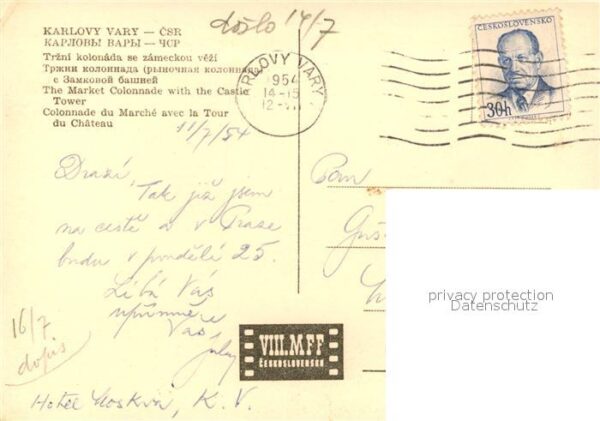 došlo 14/7
KARLOVY VARY — ČSR
КАРЛОВЫ ВАРЫ — ЧСР
Tržní kolonáda se zámeckou věží
Тржни колоннада (рыночная колоннада
с Замковой башней
The Market Colonnade with the Castle
Tower
Colonnade du Marché avec la Tour
du Château
RLOVY VARY
1954
14-15
12.VII
ČESKOSLOVENSKO
30h
11/7/54
Drazí,
Tak již jsem
na cestě a v Praze
budu v pondělí 25.
Líbá Vás
upřímně
Vás
Pan
privacy protection
Datenschutz
16/7
dopis
VIII.MFF
ČESKOSLOVENSKO
Hotel Moskva, K.V.